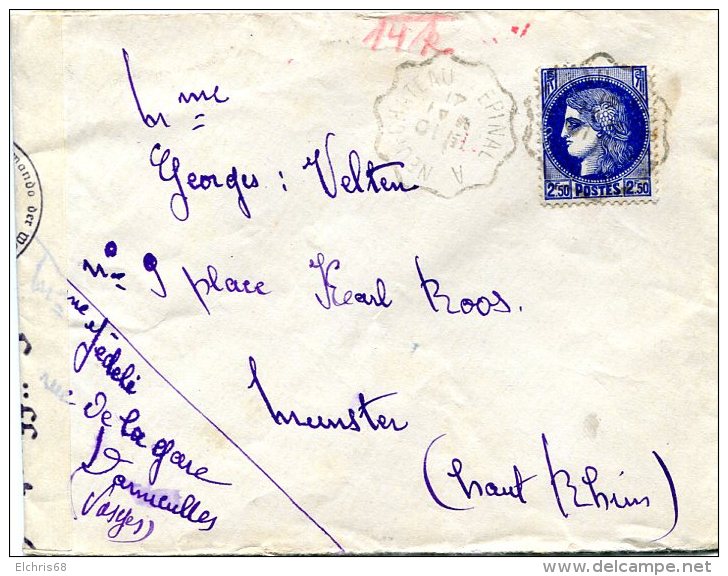 14/R
NEUFCHATEAU A EPINAL
2F50 POSTES 2F50
Mme
Georges : Velten
No 9 place Karl Roos.
Munster
(Haut Rhin)
rue de la gare
Darnieulles
(Vosges)
Elchris68
delcampe.net